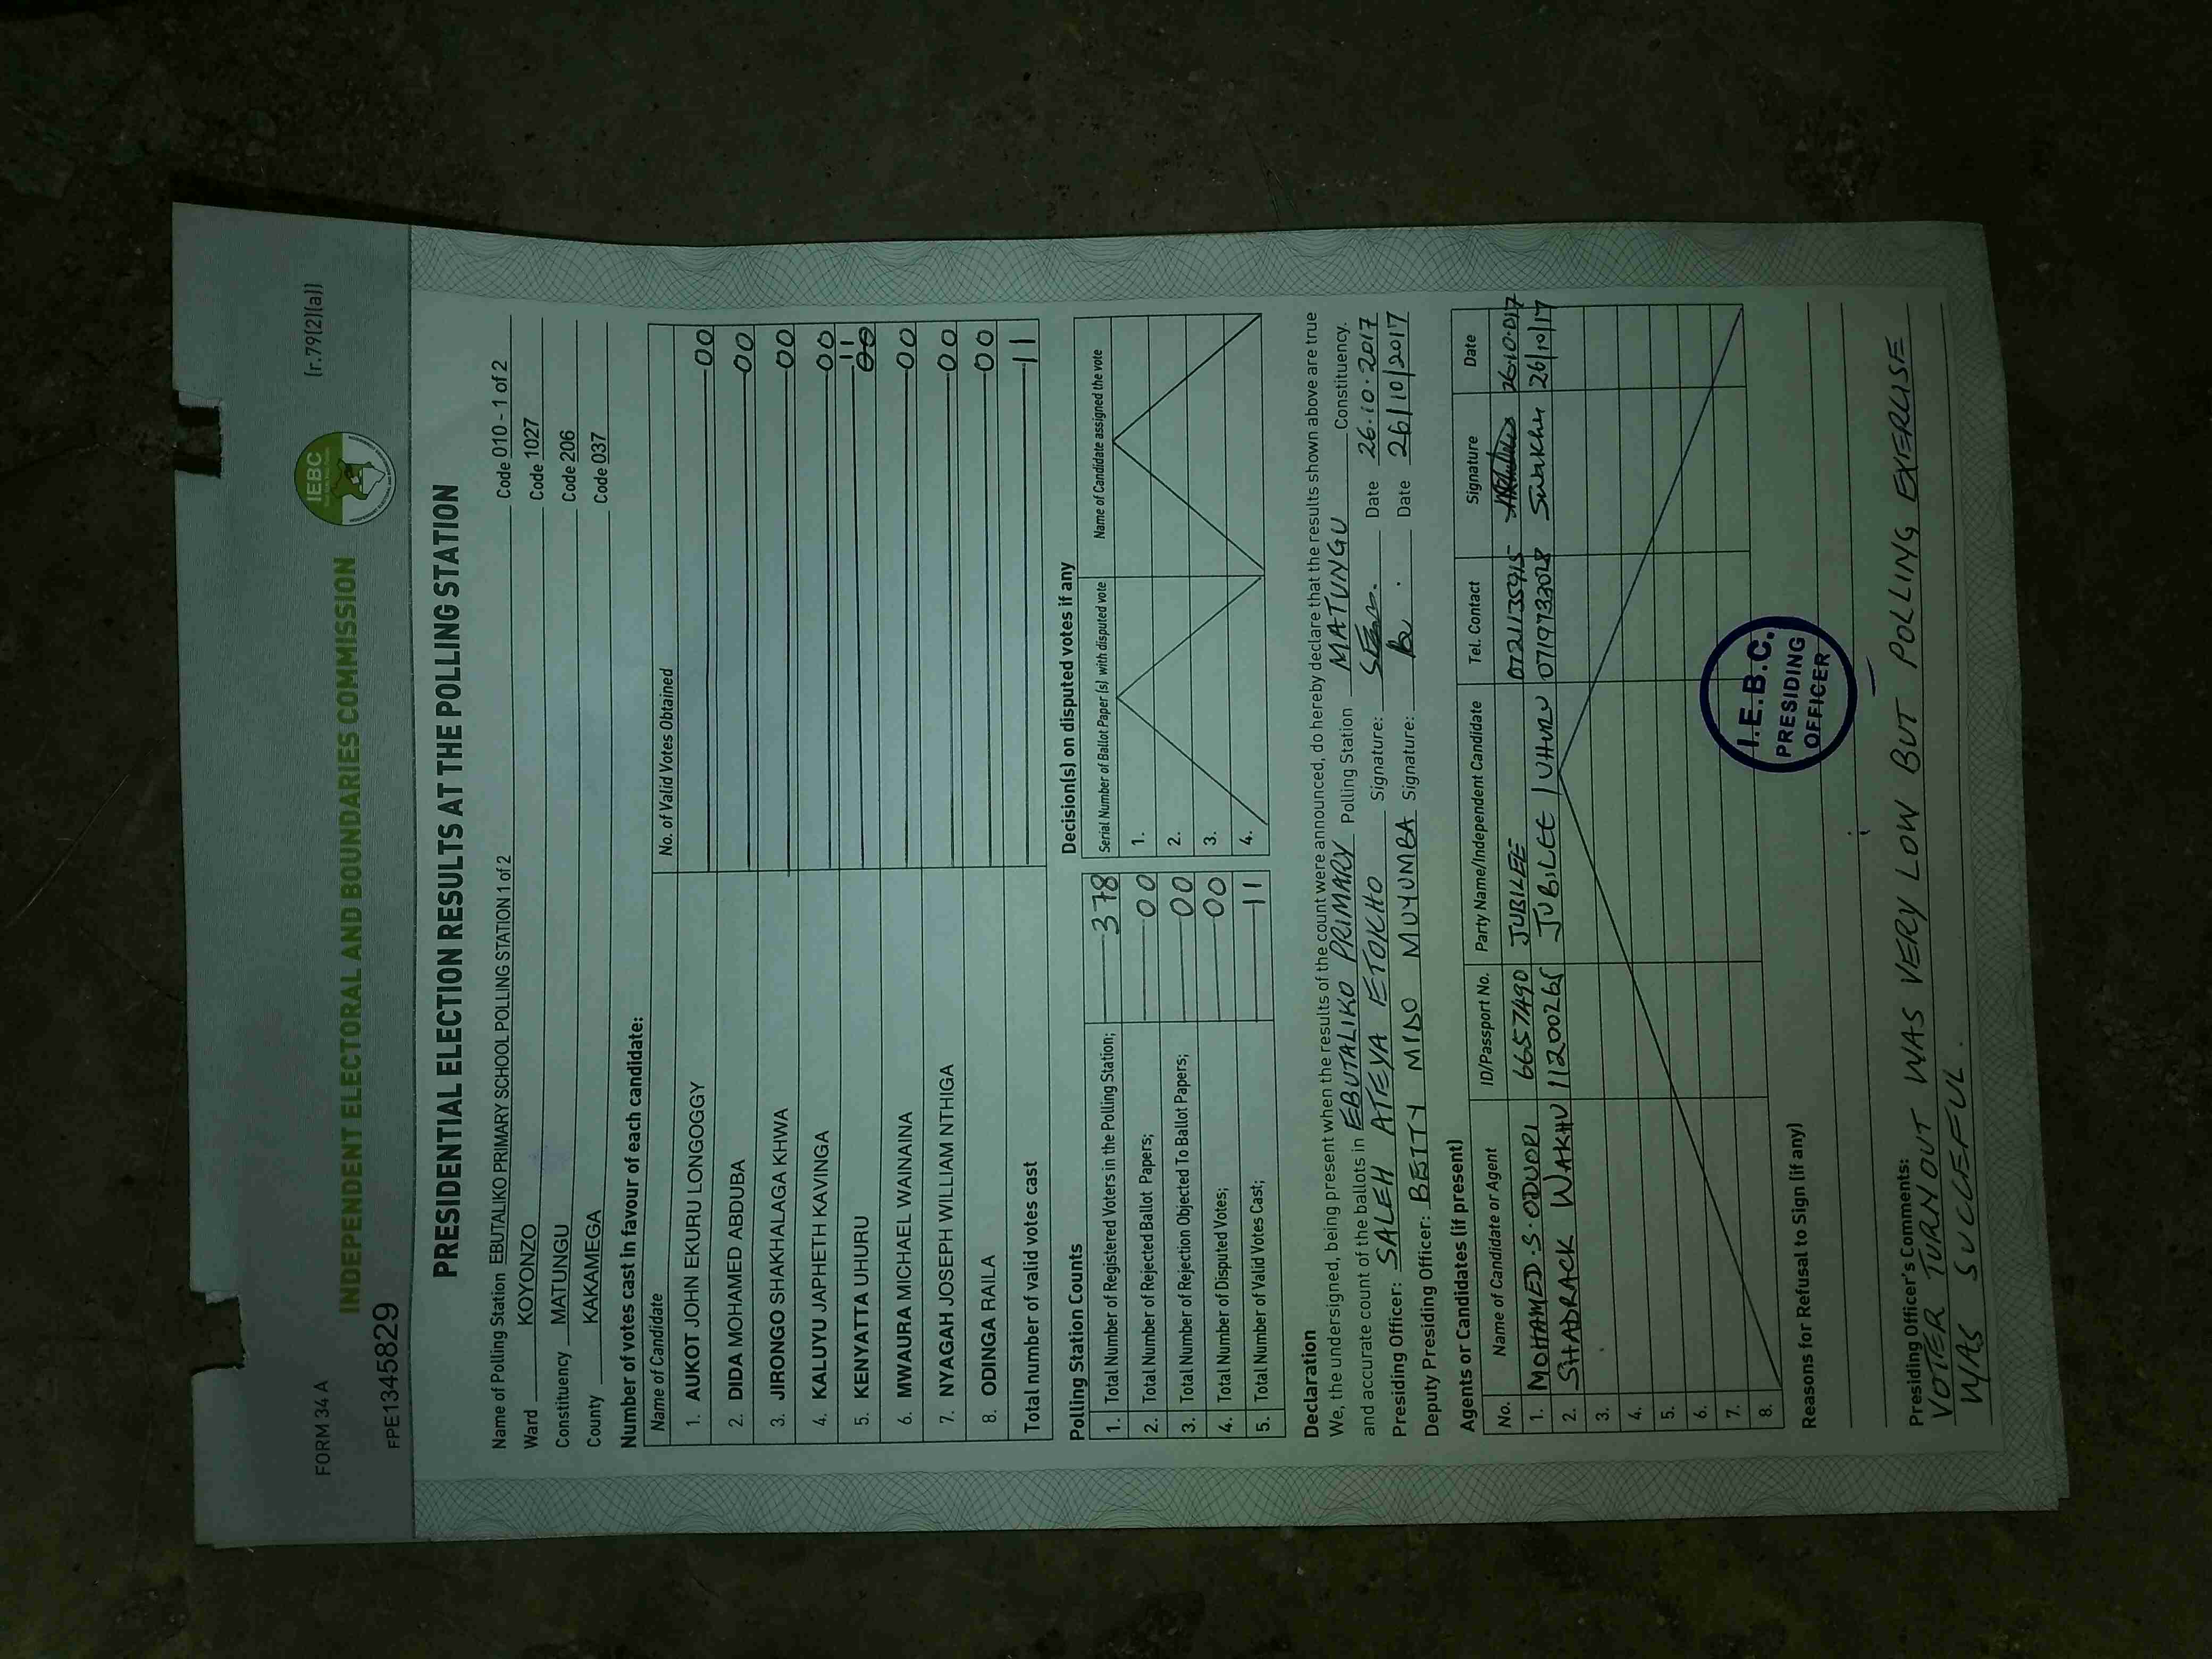 FORM 34 A
(r.79(2)(a))
IEBC
INDEPENDENT ELECTORAL AND BOUNDARIES COMMISSION
FPE1345829
PRESIDENTIAL ELECTION RESULTS AT THE POLLING STATION
Name of Polling Station EBUTALIKO PRIMARY SCHOOL POLLING STATION 1 of 2 Code 010 - 1 of 2
Ward KOYONZO Code 1027
Constituency MATUNGU Code 206
County KAKAMEGA Code 037
Number of votes cast in favour of each candidate:
Name of Candidate No. of Valid Votes Obtained
1. AUKOT JOHN EKURU LONGOGGY 00
2. DIDA MOHAMED ABDUBA 00
3. JIRONGO SHAKHALAGA KHWA 00
4. KALUYU JAPHETH KAVINGA 00
5. KENYATTA UHURU 00 11
6. MWAURA MICHAEL WAINAINA 00
7. NYAGAH JOSEPH WILLIAM NTHIGA 00
8. ODINGA RAILA 00
Total number of valid votes cast 11
Polling Station Counts
1. Total Number of Registered Voters in the Polling Station; 378
2. Total Number of Rejected Ballot Papers; 00
3. Total Number of Rejection Objected To Ballot Papers; 00
4. Total Number of Disputed Votes; 00
5. Total Number of Valid Votes Cast; 11
Decision(s) on disputed votes if any
Serial Number of Ballot Paper (s) with disputed vote Name of Candidate assigned the vote
1.
2.
3.
4.
Declaration
We, the undersigned, being present when the results of the count were announced, do hereby declare that the results shown above are true
and accurate count of the ballots in EBUTALIKO PRIMARY Polling Station MATUNGU Constituency.
Presiding Officer: SALEH ATEYA ETOKHO Signature: Date 26.10.2017
Deputy Presiding Officer: BETTY MIDO MUYUMBA Signature: Date 26/10/2017
Agents or Candidates (if present)
No. Name of Candidate or Agent ID/Passport No. Party Name/Independent Candidate Tel. Contact Signature Date
1. MOHAMED.S.ODUORI 66657490 JUBILEE 0721135915
2. SHADRACK WAKHU 11200265 JUBILEE / UHURU 0719733028 26/10/17
3.
4.
5.
6.
7.
8.
I.E.B.C.
PRESIDING
OFFICER
Reasons for Refusal to Sign (if any)
Presiding Officer's Comments:
VOTER TURNOUT WAS VERY LOW BUT POLLING EXERCISE
WAS SUCCEFUL.